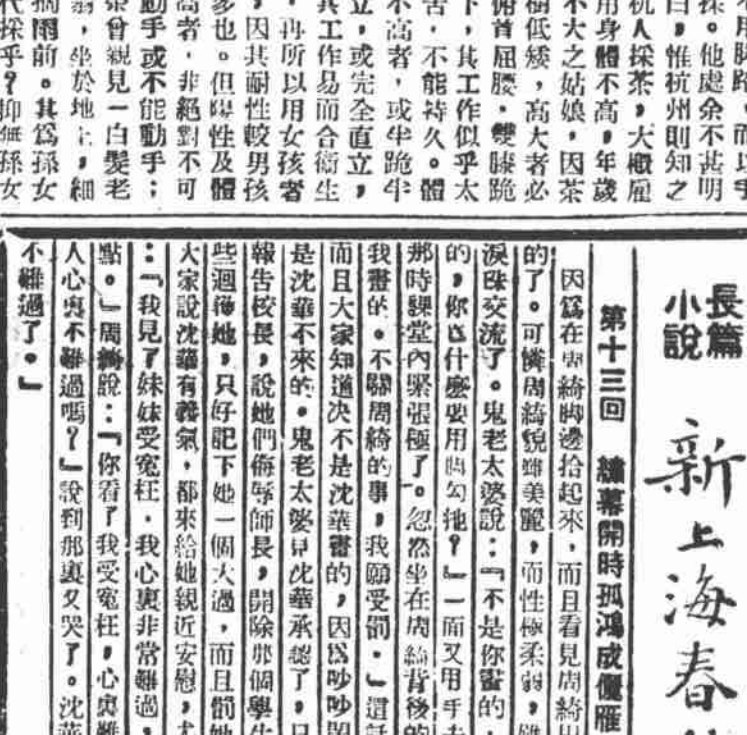 不用脚踏,而以手
採。他處余不甚明
白,惟杭州則知之
杭人採茶,大概雇
用身體不高,年歲
不大之姑娘,因茶
樹低矮,高大者必
俯首屈腰,雙膝跪
下,其工作似乎太
苦,不能持久。體
不高者,或半跪半
立,或完全直立,
其工作易而合衞生
再所以用女孩者
,因其耐性較男孩
多也。但陽性及體
高者,非絕對不可
動手或不能動手;
曾親見一白髮老
翁,坐於地上,細
摘雨前。其爲孫女
代採乎?抑無孫女
長篇
小說
新上海春
第十三回 繡幕開時孤鴻成儷雁
因爲在周綺脚邊拾起來,而且看見周綺
的了。可憐周綺貌雖美麗,而性極柔弱,雖
淚珠交流了。鬼老太婆說:「不是你畫的,
的,你爲什麼要用脚勾牠?」一面又用手去
那時課堂內緊張極了。忽然坐在周綺背後的
我畫的。不關周綺的事,我願受罰。」這話
而且大家知道决不是沈華畫的,因爲吵吵鬧
是沈華不來的。鬼老太婆見沈華承認了,只
報告校長,說她們侮辱師長,開除那個學生
些迴護她,只好記下她一個大過,而且罰她
大家說沈華有義氣,都來給她親近安慰,尤
:「我見了妹妹受寃枉,我心裏非常難過,
點。」周綺說:「你看了我受寃枉,心裏難
人心裏不難過嗎?」說到那裏又哭了。沈華
不難過了。」